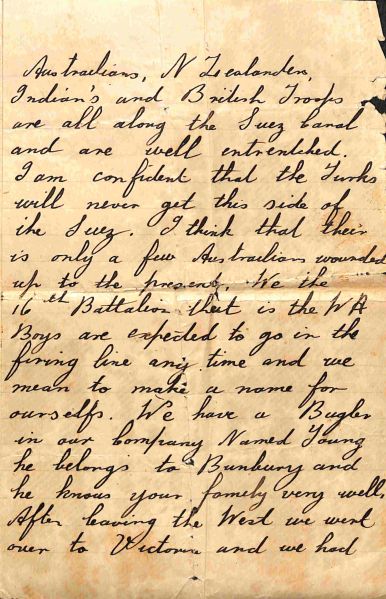 Australians, N Zealanders,
Indian's and British Troops
are all along the Suez Canal
and are well entrentched.
I am confident that the Turks
will never get this side of
the Suez. I think that their
is only a few Australian wounded
up to the present, We the
16th Battalion that is the WA
Boys are expected to go in the
firing line any time and we
mean to make a name for
ourselfs. We have a Bugler
in our Company Named Young
he belongs to Bunbury and
he knows your famely very well,
After leaving the West we went
over to Victoria and we had